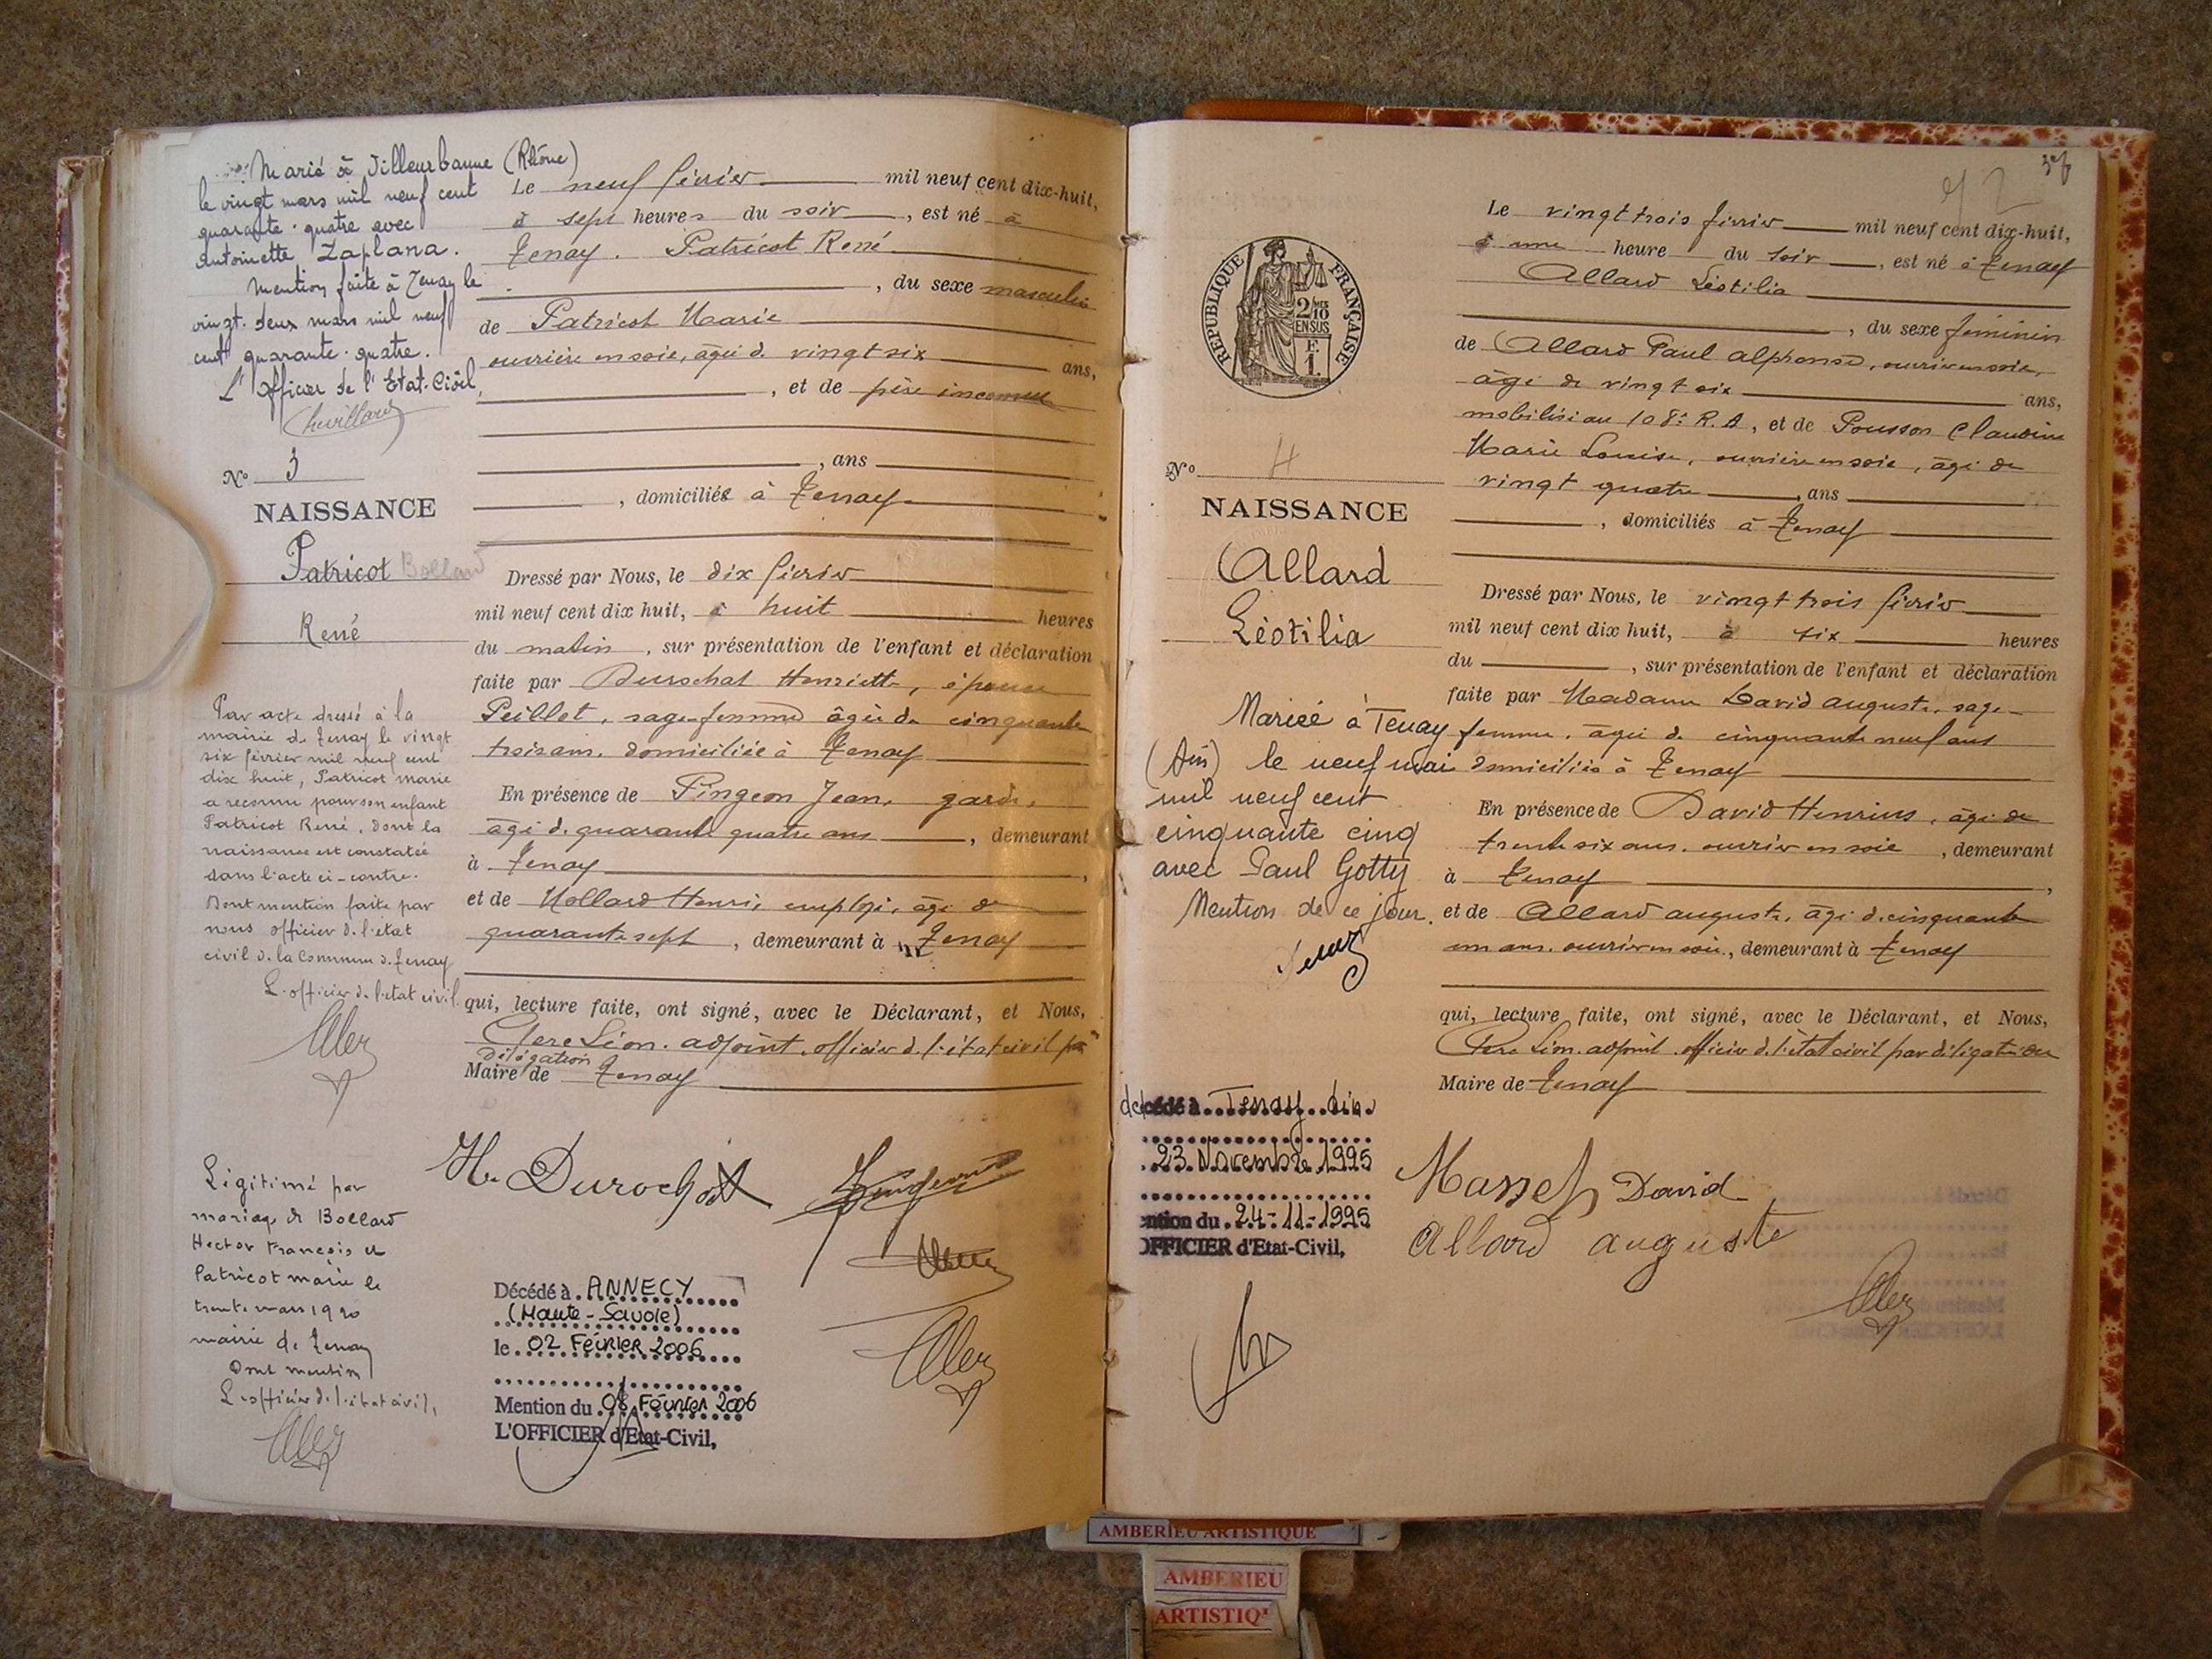 Marié à Villeurbanne (Rhône)
le vingt mars mil neuf cent
quarante-quatre avec
Antoinette Zaplana.
Mention faite à Tenay le
vingt-deux mars mil neuf
cent quarante-quatre.
L'officier de l'Etat-Civil,
No 3
NAISSANCE
Patricot Bollard
René
Par acte dressé à la
mairie de Tenay le vingt
six février mil neuf cent
dix huit, Patricot Marie
a reconnu pour son enfant
Patricot René, dont la
naissance est constatée
dans l'acte ci-contre.
Dont mention faite par
nous officier de l'état
civil de la Commune de Tenay
L'officier de l'état civil.
Légitimé par
mariage de Bollard
Hector François et
Patricot Marie le
trente mars 1920
mairie de Tenay
Dont mention
L'officier de l'état civil,
Le neuf février mil neuf cent dix-huit,
à sept heures du soir, est né à
Tenay. Patricot René
, du sexe masculin
de Patricot Marie
ouvrière en soie, âgée de vingt six ans,
, et de père inconnu
, ans
, domiciliée à Tenay
Dressé par Nous, le dix février
mil neuf cent dix huit, à huit heures
du matin, sur présentation de l'enfant et déclaration
faite par Durochat Henriette, épouse
Peillet, sage-femme âgée de cinquante
trois ans, domiciliée à Tenay
En présence de Pingeon Jean, garde,
âgé de quarante quatre ans, demeurant
à Tenay,
et de Mollard Henri, employé, âgé de
quarante sept, demeurant à Tenay
qui, lecture faite, ont signé, avec le Déclarant, et Nous,
Léon adjoint, officier de l'état civil par
délégation
Maire de Tenay
He Durochat
Décédé à ANNECY
(Haute-Savoie)
le 02 Février 2006
Mention du 08 Février 2006
L'OFFICIER d'Etat-Civil,
92
RÉPUBLIQUE FRANÇAISE
2/10 MES
EN SUS
F.
1.
No 4
NAISSANCE
Allard
Léotilia
Mariée à Tenay
(Ain) le neuf mai
mil neuf cent
cinquante cinq
avec Paul Gotty
Mention de ce jour.
décédé à Tenay Ain
23 Novembre 1995
ention du 24-11-1995
OFFICIER d'Etat-Civil,
Le vingt trois février mil neuf cent dix-huit,
à une heure du soir, est né à Tenay
Allard Léotilia
, du sexe féminin
de Allard Paul Alphonse, ouvrier en soie,
âgé de vingt six ans,
mobilisé au 108e R.A, et de Pousson Claudine
Marie Louise, ouvrière en soie, âgée de
vingt quatre, ans
, domiciliés à Tenay
Dressé par Nous, le vingt trois février
mil neuf cent dix huit, à six heures
du , sur présentation de l'enfant et déclaration
faite par Madame David Auguste, sage-
femme, âgée de cinquante neuf ans
domiciliée à Tenay
En présence de David Henrius, âgé de
trente six ans, ouvrier en soie, demeurant
à Tenay,
et de Allard Auguste, âgé de cinquante
un ans, ouvrier en soie, demeurant à Tenay
qui, lecture faite, ont signé, avec le Déclarant, et Nous,
Léon adjoint officier de l'état civil par délégation
Maire de Tenay
David
Allard auguste
AMBERIEU ARTISTIQUE
AMBERIEU
ARTISTIQ